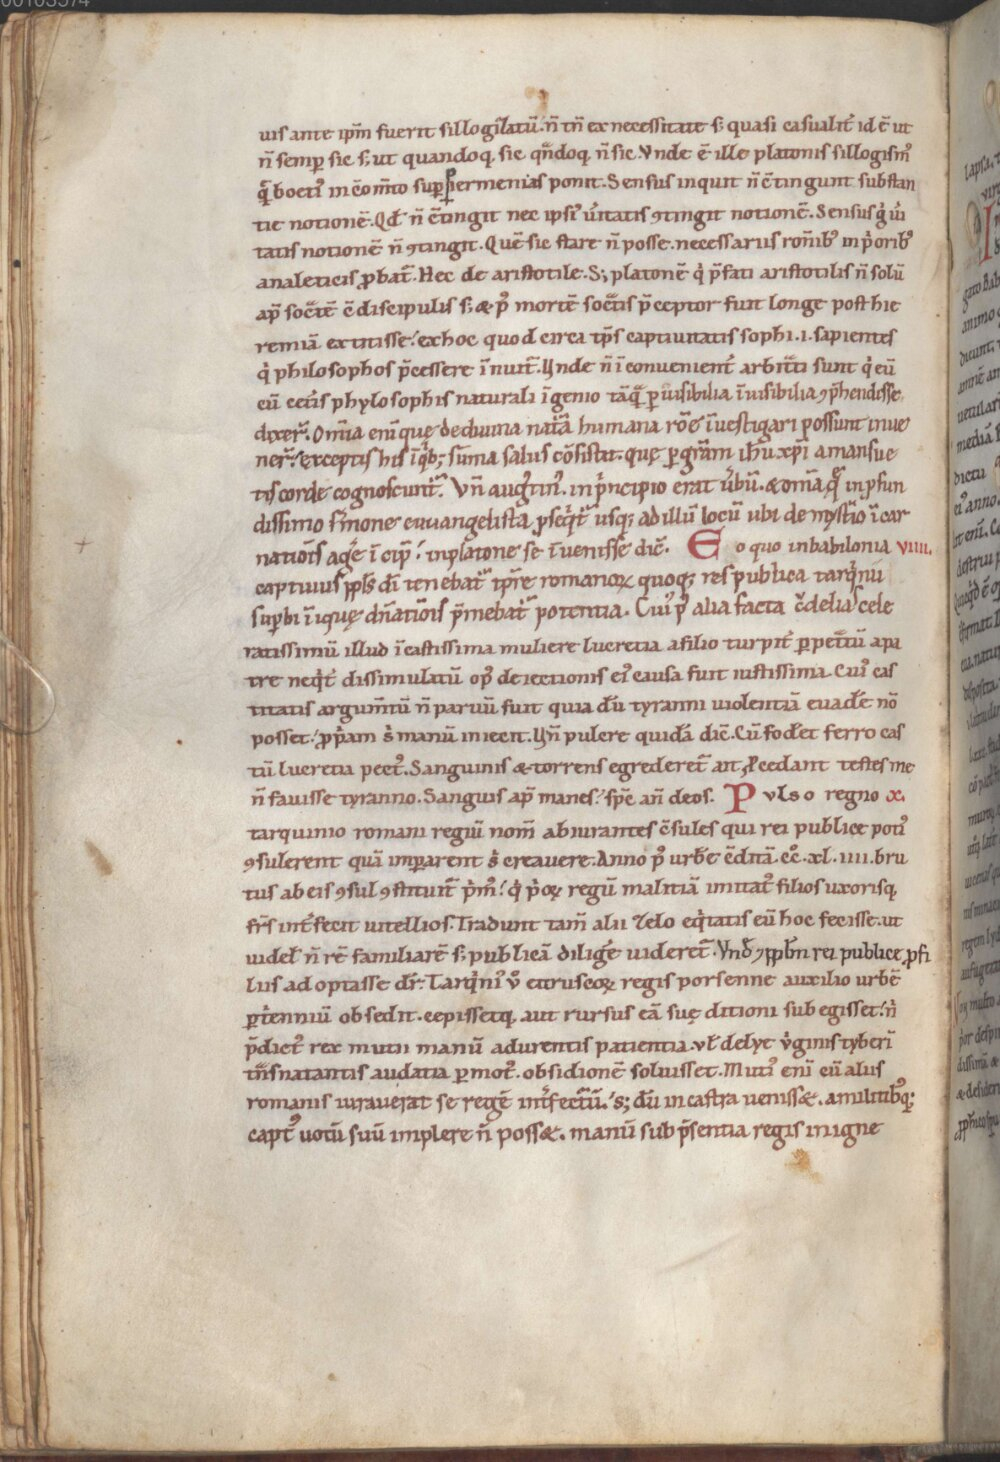 00103574
uis ante ip̄m fuerit sillogiſatū. n̄ tn̄ ex necessitate s; quasi casualit̄ id ē ut
n̄ semp̱ sic s; ut quandoq, sic qn̄doq, n̄ sic. Vnde ē ille platonis sillogism᷒
q̄ boeti᷒ in cōm̄to sup̱ p̱iermenias ponit. Sensus inquit n̄ c̄tingunt substan
tie notionē. Qd̄ n̄ c̄tingit nec ipsi᷒ ū̓itatis ꝯtingit notionē. Sensus g̓ ū̓i
tatis notionē n̄ ꝯtingit. Quē sic stare n̄ posse. necessariis rōnib᷒ in p̓orib᷒
analeticis ꝓbat̄. Hec de aristotile. S; platonē q̓ p̄fati aristotilis n̄ solū
ap̄ soc̄tē c̄discipulis s; & p᷒ mortē soc̄tis p̄ceptor fuit longe post hie
remiā extitisse. ex hoc quod circa tp̄s captiuitatis sophi .i. sapientes
q̓ philosophos p̄cessere īnuit̄. Vnde n̄ īconuenient̄ arbit̄ti sunt q̓ eū
cū cet̄is phylosophis naturali īgenio tāq̄ p̱ uisibilia īuisibilia ꝯp̄hendisse
dixer̄. Om̄ia eni que de diuina nat̄a humana rōe īuestigari possunt inue
ner̄. exceptis his īq̓b; sūma salus cōsistit. quę p̱ gr̄am ih̄u xp̄i a mansue
tis corde cognoscunt̄. Vn̄ aug᷒tin᷒. in p̓ncipio erat ūbū. & om̄ia q̄ in p̱fun
dissimo s̄mone euuangelista p̱seq̓t̄ usq; ad illū locū ubi de myst̄io īcar
natiōis agē īcip̄. in platone se īuenisse dic̄. Eo quo in babilonia VIIII.
captiuus ppl̄s dī tenebat̄ tp̄re romanoꝝ quoq; res publica tarq̓nii
sup̱bi īiquę dn̄atiōis p̄mebat̄ potentia. Cui᷒ p᷒ alia facta c̄delia cele
ratissimū illud ī castissima muliere lucretia a filio turpit̄ p̱pet̄tū a pa
tre neq̓t̄ dissimulatū op᷒ deiectionis ei᷒ causa fuit iustissima. Cui᷒ cas
titatis argum̄tū n̄ paruū fuit quia dū tyranni uiolentiā euadē nō
posset. ꝓp̓am s̓ manū iniecit. Vn̄ pulcre quidā dic̄. Cū fod̓et ferro cas
tū lucretia pect᷒. Sanguinis & torrens egrederet̄ ait. ꝓcedant testes me
n̄ fauisse tyranno. Sanguis ap̄ manes. sp̄c an̄ deos. Pulso regno X.
tarquinio romani regiū nom̄ abiurantes c̄sules qui rei publice poti᷒
ꝯsulerent quā imp̱arent s̓ creauere. Anno p᷒ urbē c̄ditā. CC̄. XL. IIII. bru
tus ab eis ꝯsul ꝯstituit̄ p̓m᷒. q̓ p̓oꝝ regū malitiā imitat᷒ filios uxorisq,
fr̄s int̄fecit uitellios. Tradunt tam̄ alii zelo eq̓tatis eū hoc fecisse. ut
uidel̄ n̄ rē familiarē s; publicā diligē uideret̄. Vnd̓ ꝯp̱p̱l̄m rei publice ꝓ fi
lius adoptasse dr̄. Tarq̓ni᷒ v᷒ etruscoꝝ regis porsenne auxilio urbē
p̱ t̓enniū obsedit. cepissetq. aut rursus eā suę ditioni subegisset. n̓
p̄dict᷒ rex mutii manū adurentis patientia. ul̄ delyc v̓ginis tyberī
tn̄snatantis audatia p̱mot᷒. obsidionē soluisset. Muti᷒ enī eū alius
romanis iurauerat se regē int̄fectū̄. S; dū in castra uenissꝫ. a militib᷒q;
capt᷒ uotū suū implere n̄ poss&. manū sub p̄sentia regis in igne